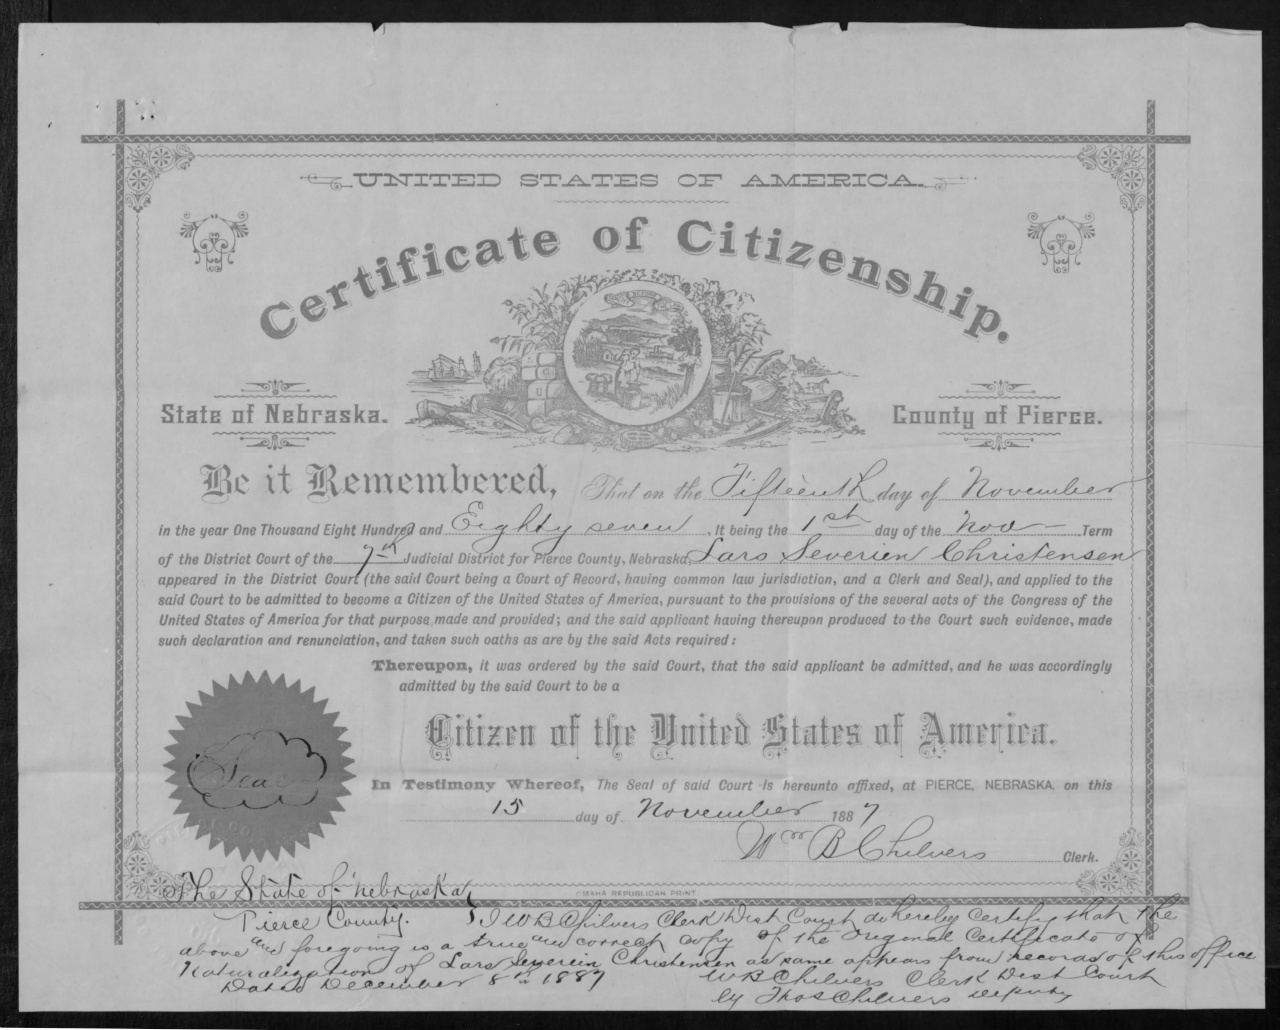 UNITED STATES OF AMERICA.
Certificate of Citizenship.
State of Nebraska.
County of Pierce.
Be it Remembered, That on the Fifteenth day of November
in the year One Thousand Eight Hundred and Eighty seven, It being the 1st day of the Nov Term
of the District Court of the 7th Judicial District for Pierce County, Nebraska, Lars Severien Christensen
appeared in the District Court (the said Court being a Court of Record, having common law jurisdiction, and a Clerk and Seal), and applied to the
said Court to be admitted to become a Citizen of the United States of America, pursuant to the provisions of the several acts of the Congress of the
United States of America for that purpose made and provided; and the said applicant having thereupon produced to the Court such evidence, made
such declaration and renunciation, and taken such oaths as are by the said Acts required:
Thereupon, it was ordered by the said Court, that the said applicant be admitted, and he was accordingly
admitted by the said Court to be a
Citizen of the United States of America.
In Testimony Whereof, The Seal of said Court is hereunto affixed, at PIERCE, NEBRASKA, on this
15 day of November 1887
Wm B Chilvers Clerk.
Seal
OMAHA REPUBLICAN PRINT
The State of Nebraska
Pierce County. } I W B Chilvers Clerk Dist Court do hereby certify that the
above and foregoing is a true and correct copy of the origonal Certificate of
Naturalization of Lars Severein Christensen as same appears from records of this office
Dated December 8th 1887 W B Chilvers Clerk Dist Court
by Thos Chilvers deputy